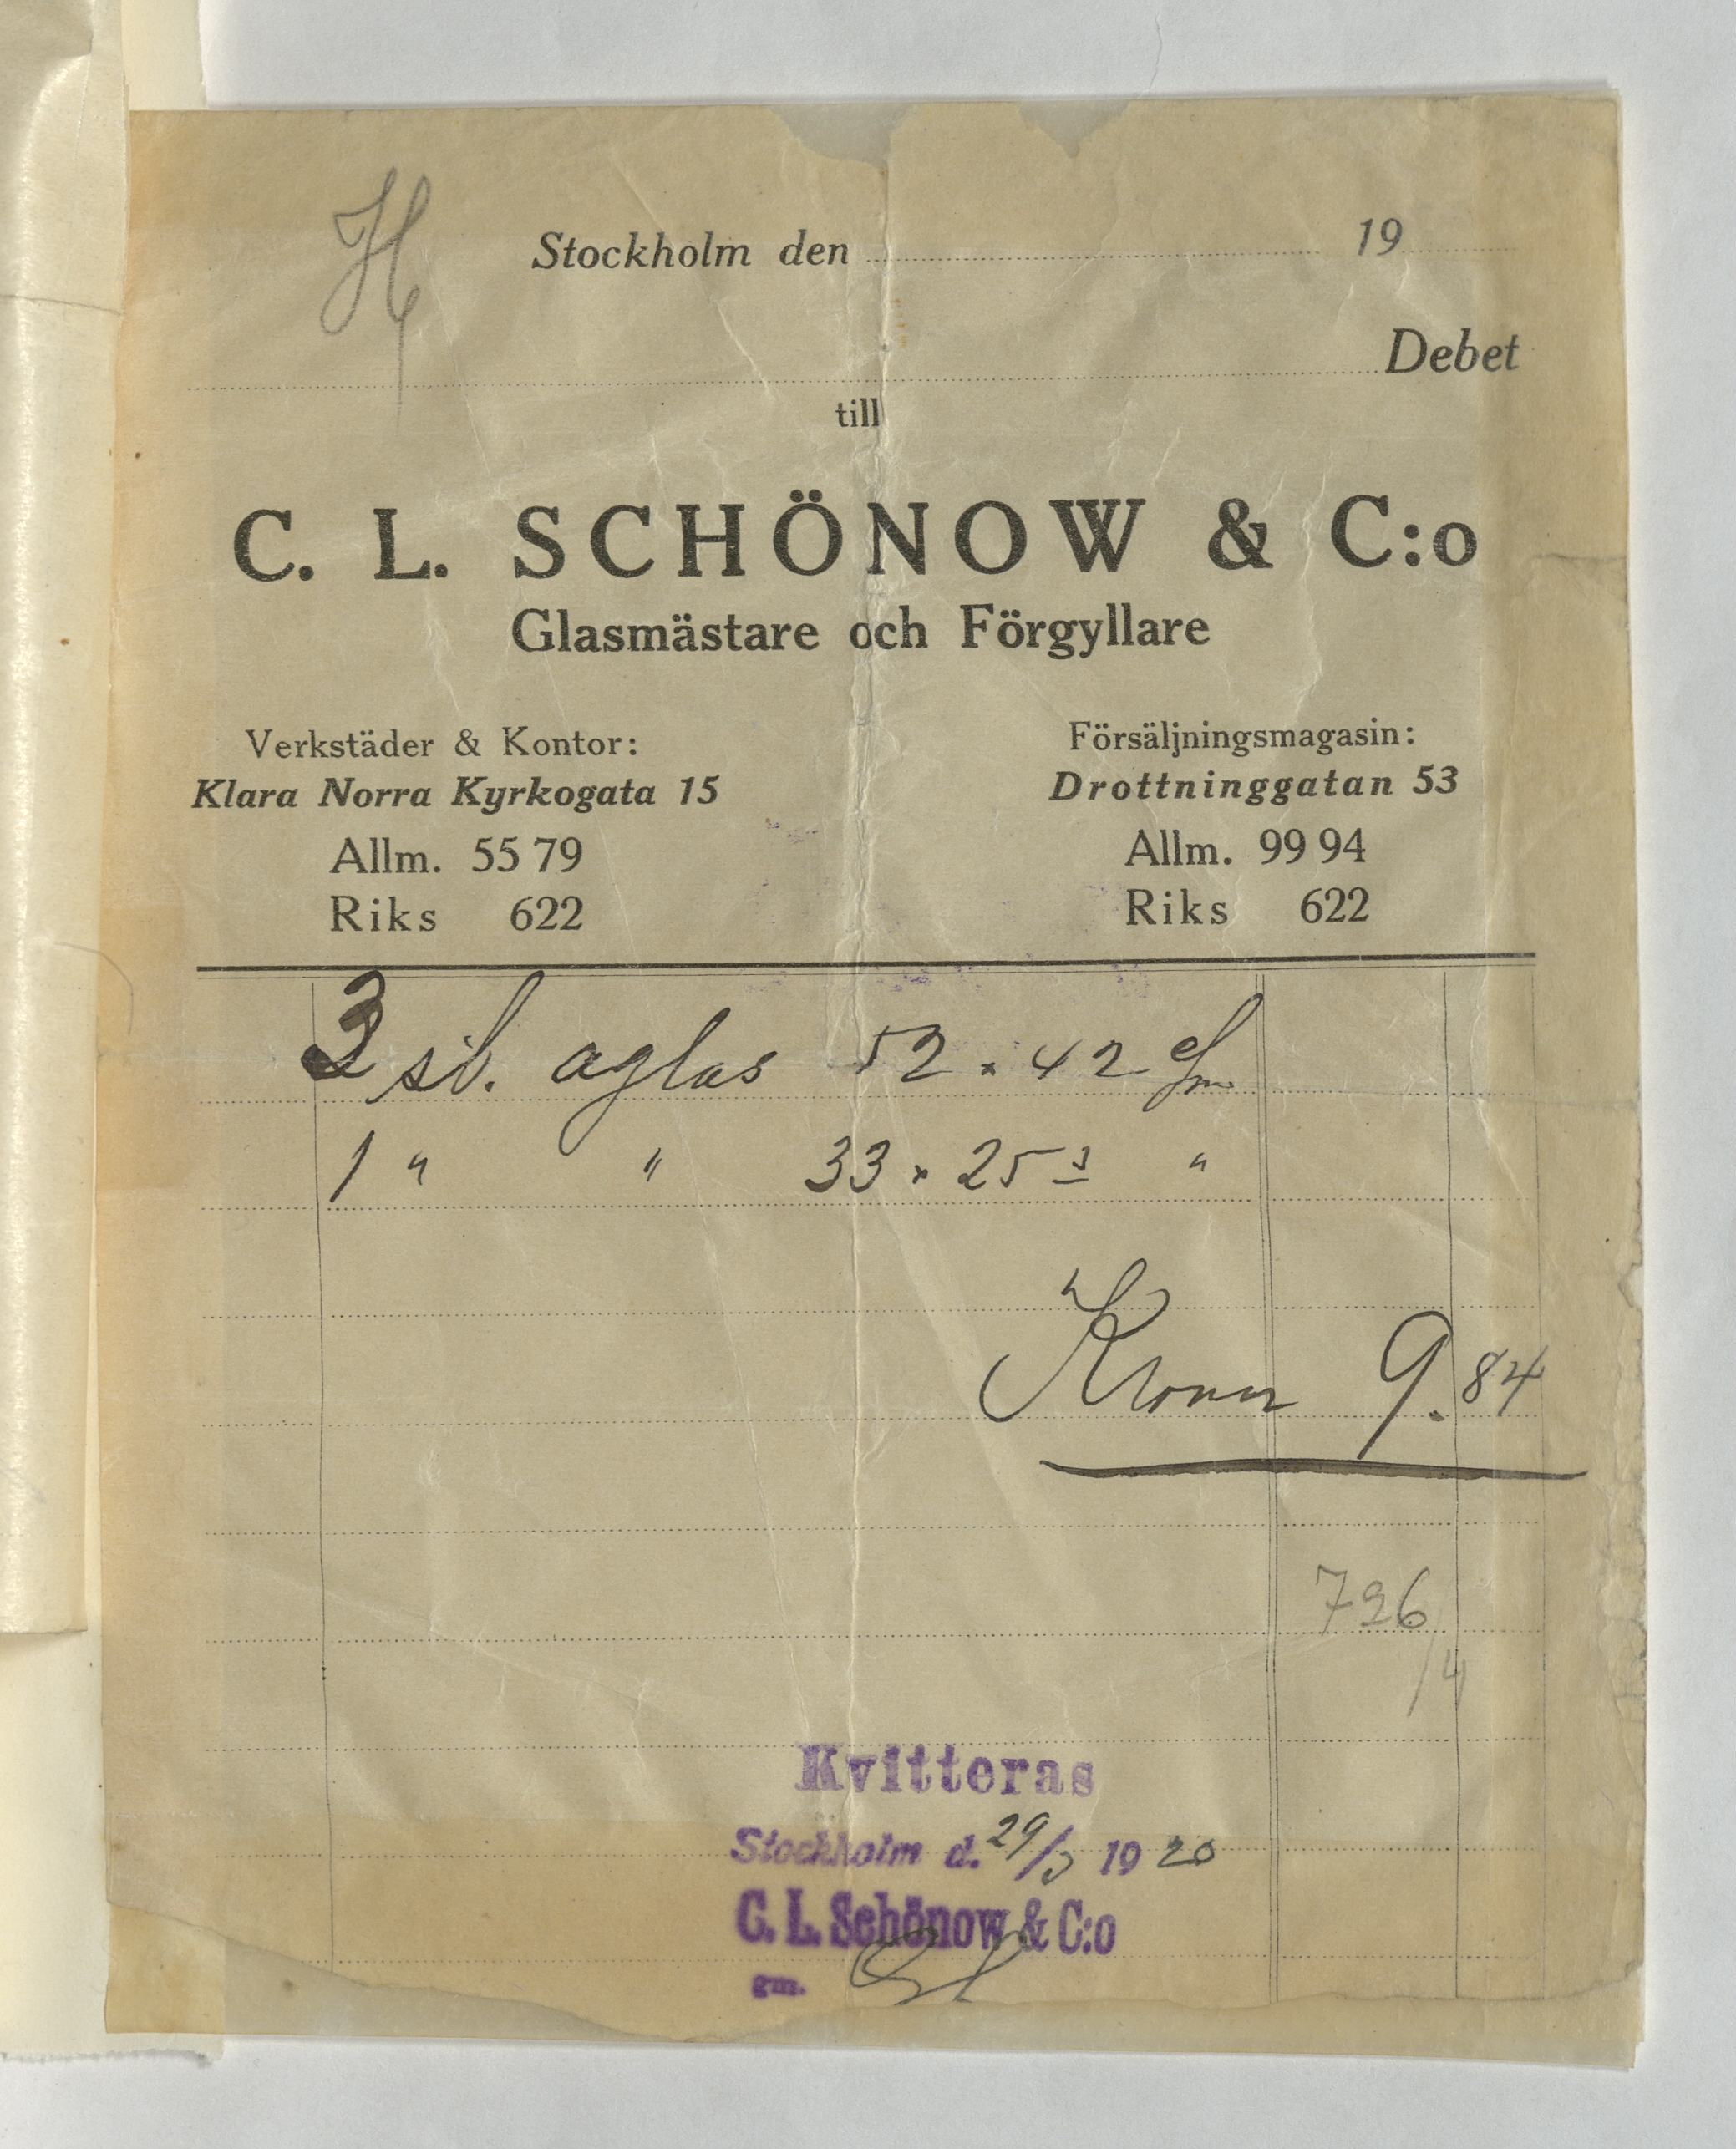 H
Stockholm den 19
Debet
till
C. L. SCHÖNOW & C:o
Glasmästare och Förgyllare
Verkstäder & Kontor:
Klara Norra Kyrkogata 15
Allm. 55 79
Riks 622
Försäljningsmagasin:
Drottninggatan 53
Allm. 99 94
Riks 622
3 st. aglas 52 × 42 cm
1 " " 33 × 25 "
Kronor 9.84
726
/4
Kvitteras
Stockholm d. 29/3 1920
C. L. Schönow & C:o
gm.